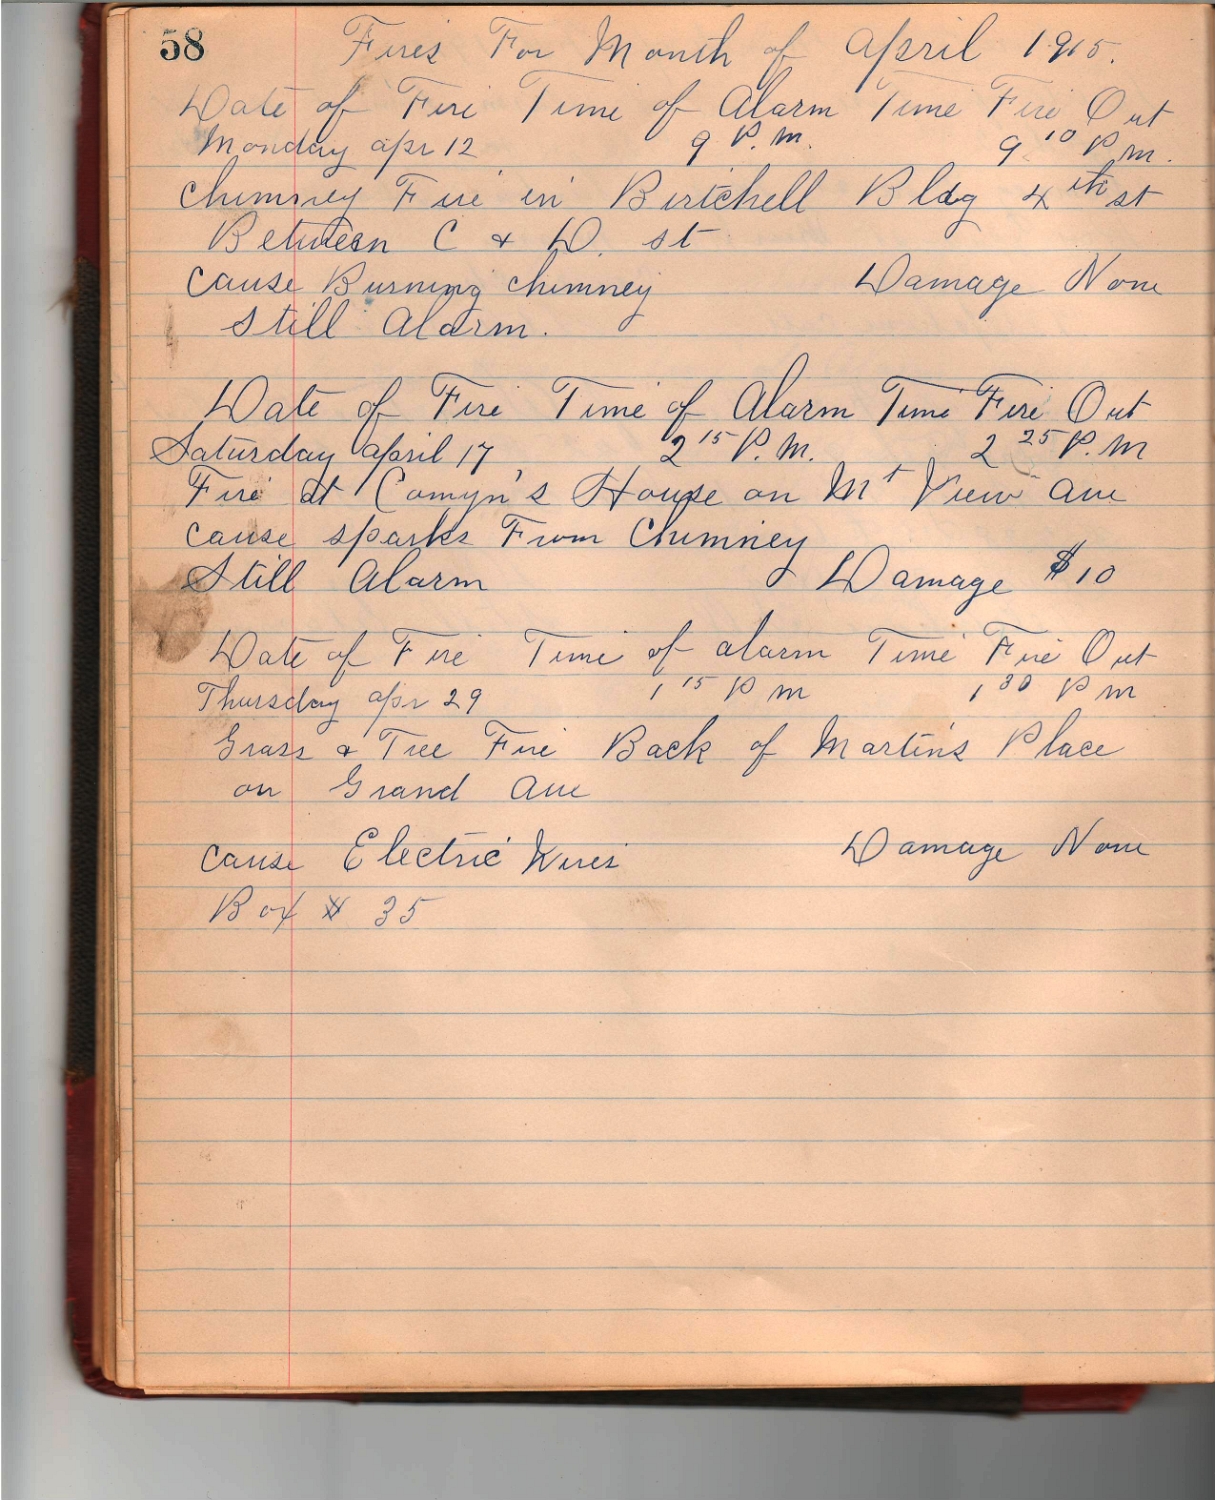 58
Fires For Month of April 1915.
Date of Fire Time of Alarm Time Fire Out
Monday apr 12 9 P.M. 9 10 P M.
Chimney Fire in Birtchell Bldg 4th st
Between C & D. st
Cause Burning Chimney Damage None
Still Alarm.
Date of Fire Time of Alarm Time Fire Out
Saturday April 17 2 15 P.M. 2 25 P.M
Fire at Comyn's House on Mt View Ave
Cause sparks From Chimney
Still Alarm Damage $10
Date of Fire Time of alarm Time Fire Out
Thursday apr 29 1 15 P M 1 30 P M
Grass & Tree Fire Back of Martins Place
on Grand Ave
Cause Electric Wires Damage None
Box # 35